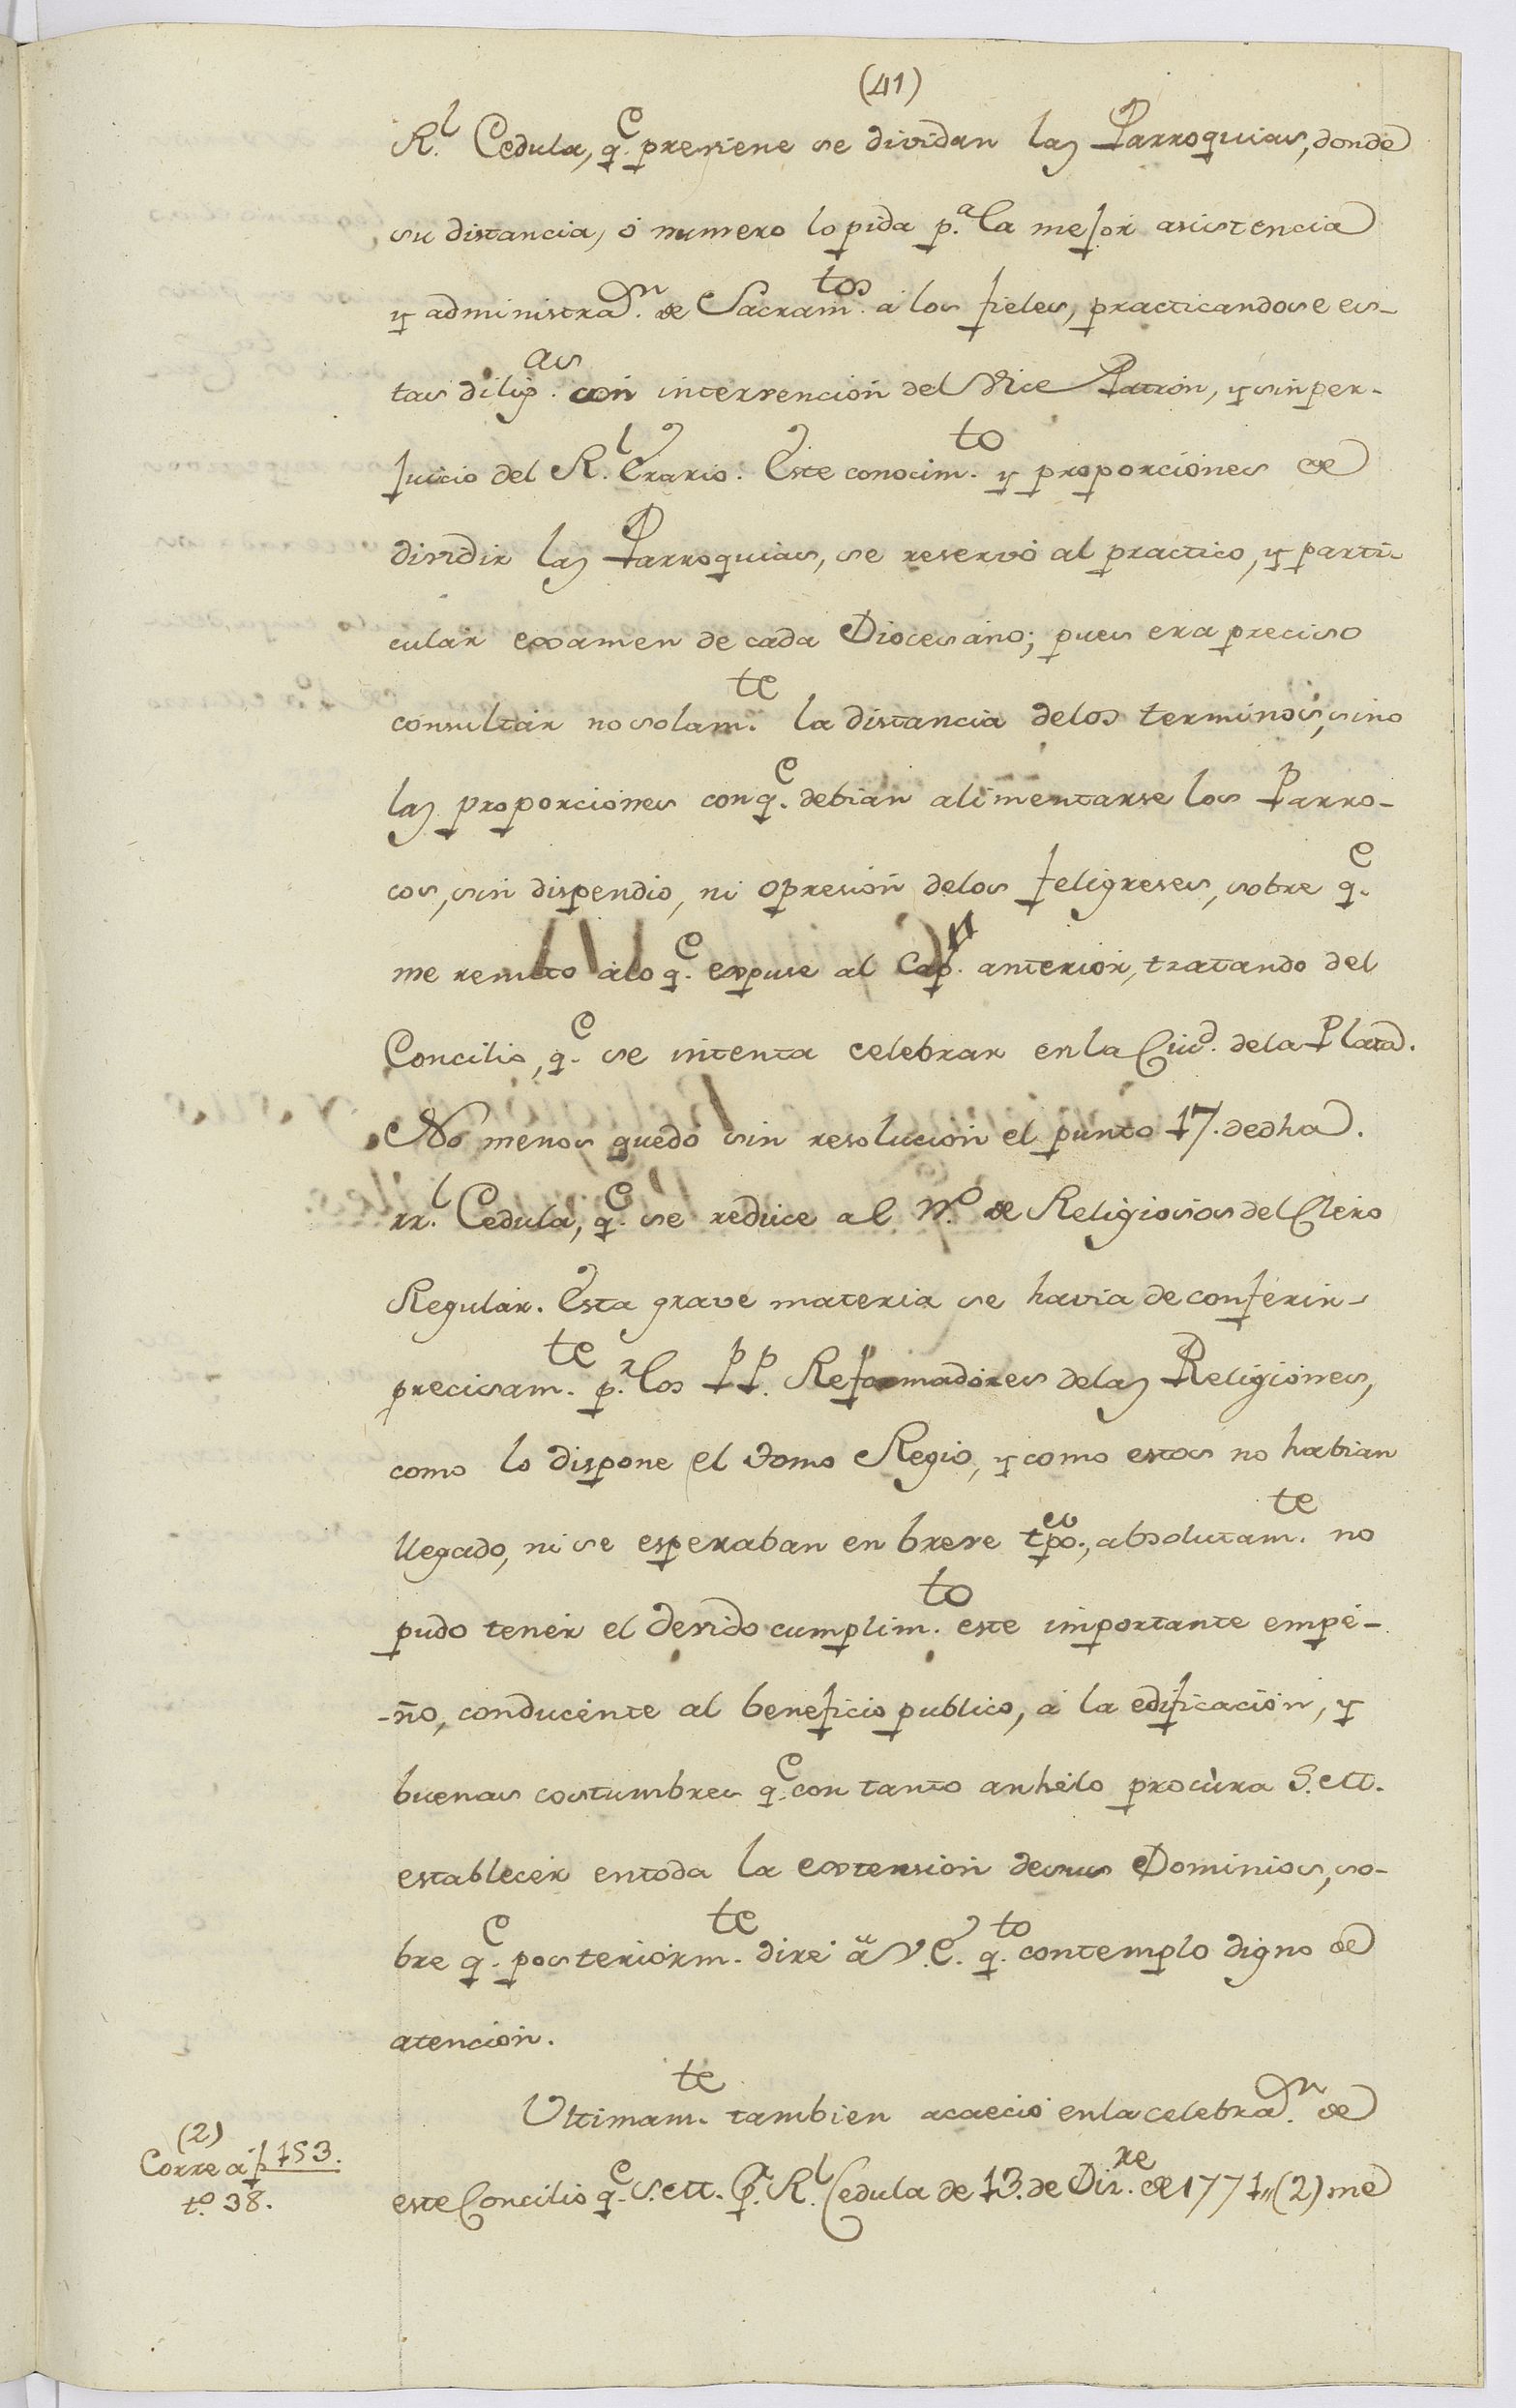 (41)
R.l Cedula, q.e previene se dividan las Parroquias, donde
su distancia, ó numero lo pida p.a la mejor asistencia
y administra.on de Sacram.tos á los fieles, practicandose es-
tas dilig.as con intervencion del Vice Patron, y sin per-
juicio del R.l Erario. Este conocim.to y proporciones de
dividir las Parroquias, se reservó al practico, y parti-
cular examen de cada Diocesano; pues era preciso
consultar no solam.te la distancia delos terminos, sino
las proporciones con q.e debian alimentarse los Parro-
cos, sin dispendio, ni opresion delos feligreses, sobre q.e
me remito álo q.e expuse al Cap. anterior, tratando del
Concilio, q.e se intenta celebrar en la Ciud. dela Plata.
No menos quedó sin resolucion el punto 17. de dha.
rr.l Cedula, q.e se reduce al N.o de Religiosos del Clero
Regular. Esta grave materia se havia de conferir
precisam.te p.r los PP. Reformadores delas Religiones,
como lo dispone el tomo Regio, y como estos no habian
llegado, ni se esperaban en breve tpo., absolutam.te no
pudo tener el devido cumplim.to este importante empe-
-ño, conducente al beneficio publico, á la edificacion, y
buenas costumbres q.e con tanto anhelo procùra S. M.
establecer en toda la extension de sus Dominios, so-
bre q.e posteriorm.te diré á V. E. q.to contemplo digno de
atencion.
Ultimam.te tambien acaeció en la celebra.on de
este Concilio q.e S. M. P.r R.l Cedula de 13. de Diz.re de 1771,, (2) me
(2)
Corre á f 153.
t.o 38.